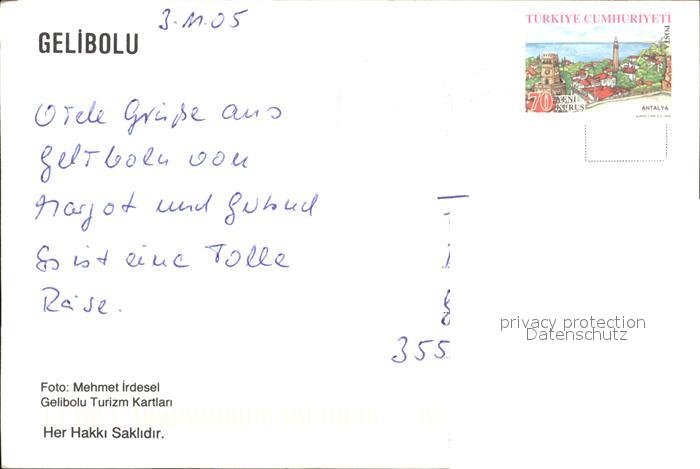 3.11.05
GELİBOLU
TÜRKİYE CUMHURİYETİ
POSTA
70 YENİ KURUŞ
ANTALYA
Viele Grüße aus
Gelibolu von
Margot und
Es ist eine Tolle
Reise.
355
privacy protection
Datenschutz
Foto: Mehmet İrdesel
Gelibolu Turizm Kartları
Her Hakkı Saklıdır.